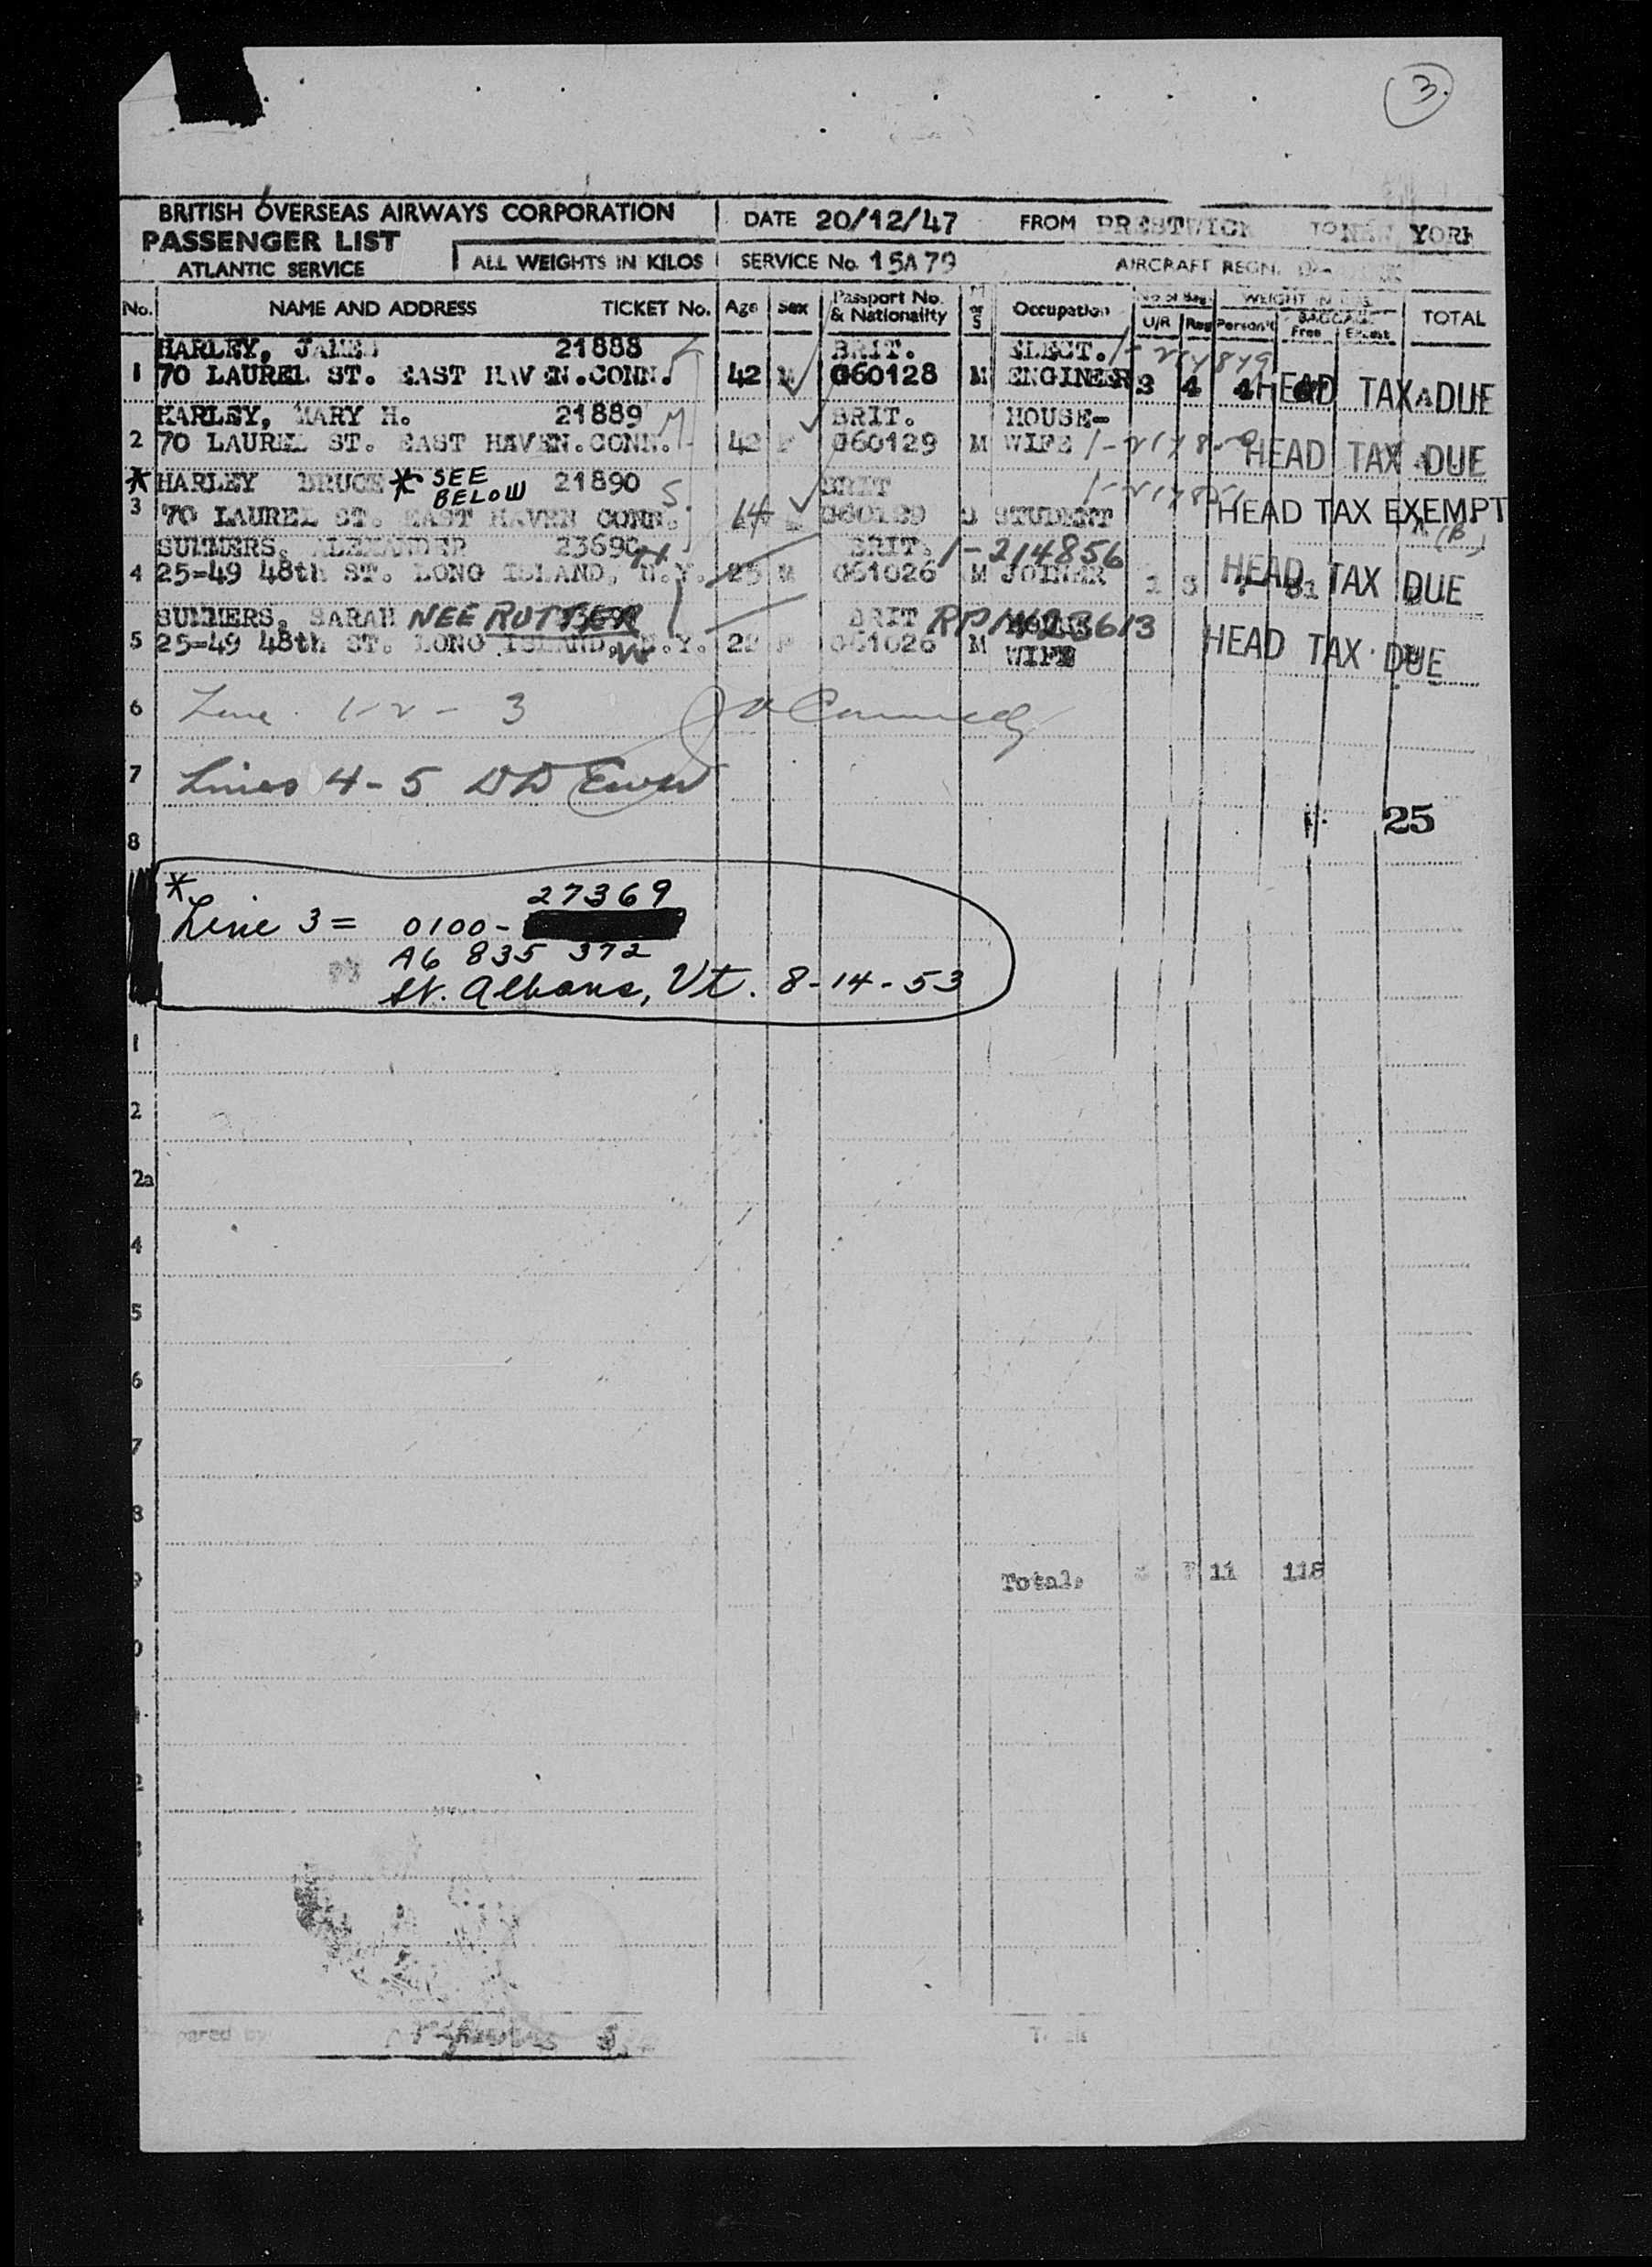 3.
BRITISH OVERSEAS AIRWAYS CORPORATION
PASSENGER LIST
ATLANTIC SERVICE
ALL WEIGHTS IN KILOS
DATE 20/12/47 FROM PRESTWICK TO NEW YORK
SERVICE No. 15A79 AIRCRAFT REGN.
No. NAME AND ADDRESS TICKET No. Age Sex Passport No. & Nationality M or S Occupation No of Bags U/R Reg Person'l WEIGHT IN KGS. BAGGAGE Free Excent TOTAL
HARLEY, JAMES 21888 BRIT. ELECT. 1-214849
1 70 LAUREL ST. EAST HAVEN.CONN. 42 M G60128 M ENGINEER 3 4 4 HEAD TAX DUE
HARLEY, MARY H. 21889 M BRIT. HOUSE-
2 70 LAUREL ST. EAST HAVEN.CONN. 42 F G60129 M WIFE HEAD TAX DUE
* HARLEY BRUCE * SEE BELOW 21890 S BRIT
3 70 LAUREL ST. EAST HAVEN CONN. 14 G60129 S STUDENT HEAD TAX EXEMPT
SUMMERS, ALEXANDER 23690 BRIT. 1-214856
4 25-49 48th ST. LONG ISLAND, N.Y. 25 M G61026 M JOINER HEAD TAX DUE
SUMMERS, SARAH NEE BRIT
5 25-49 48th ST. LONG ISLAND, N.Y. F G61026 M WIFE HEAD TAX DUE
6 Line 1-2-3
7 Lines 4-5
25
8
*
27369
Line 3 = 0100-
A6 835 372
St. Albans, Vt. 8-14-53
1
2
2a
4
5
6
7
8
9
Totals 11 118